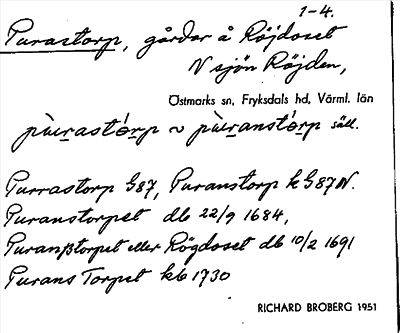 1-4.
Purastorp, gårdar å Röjdoset
V sjön Röjden,
Östmarks sn, Fryksdals hd, Värml. län
pùrastó̀rp ~ pùranstó̀rp säll.
Purrastorp G87, Puranstorp k G87N.
Puranstorpet db 22/9 1684,
Puranßtorpet eller Rögdoset db 10/2 1691
Purans Torpet kb 1730
RICHARD BROBERG 1951